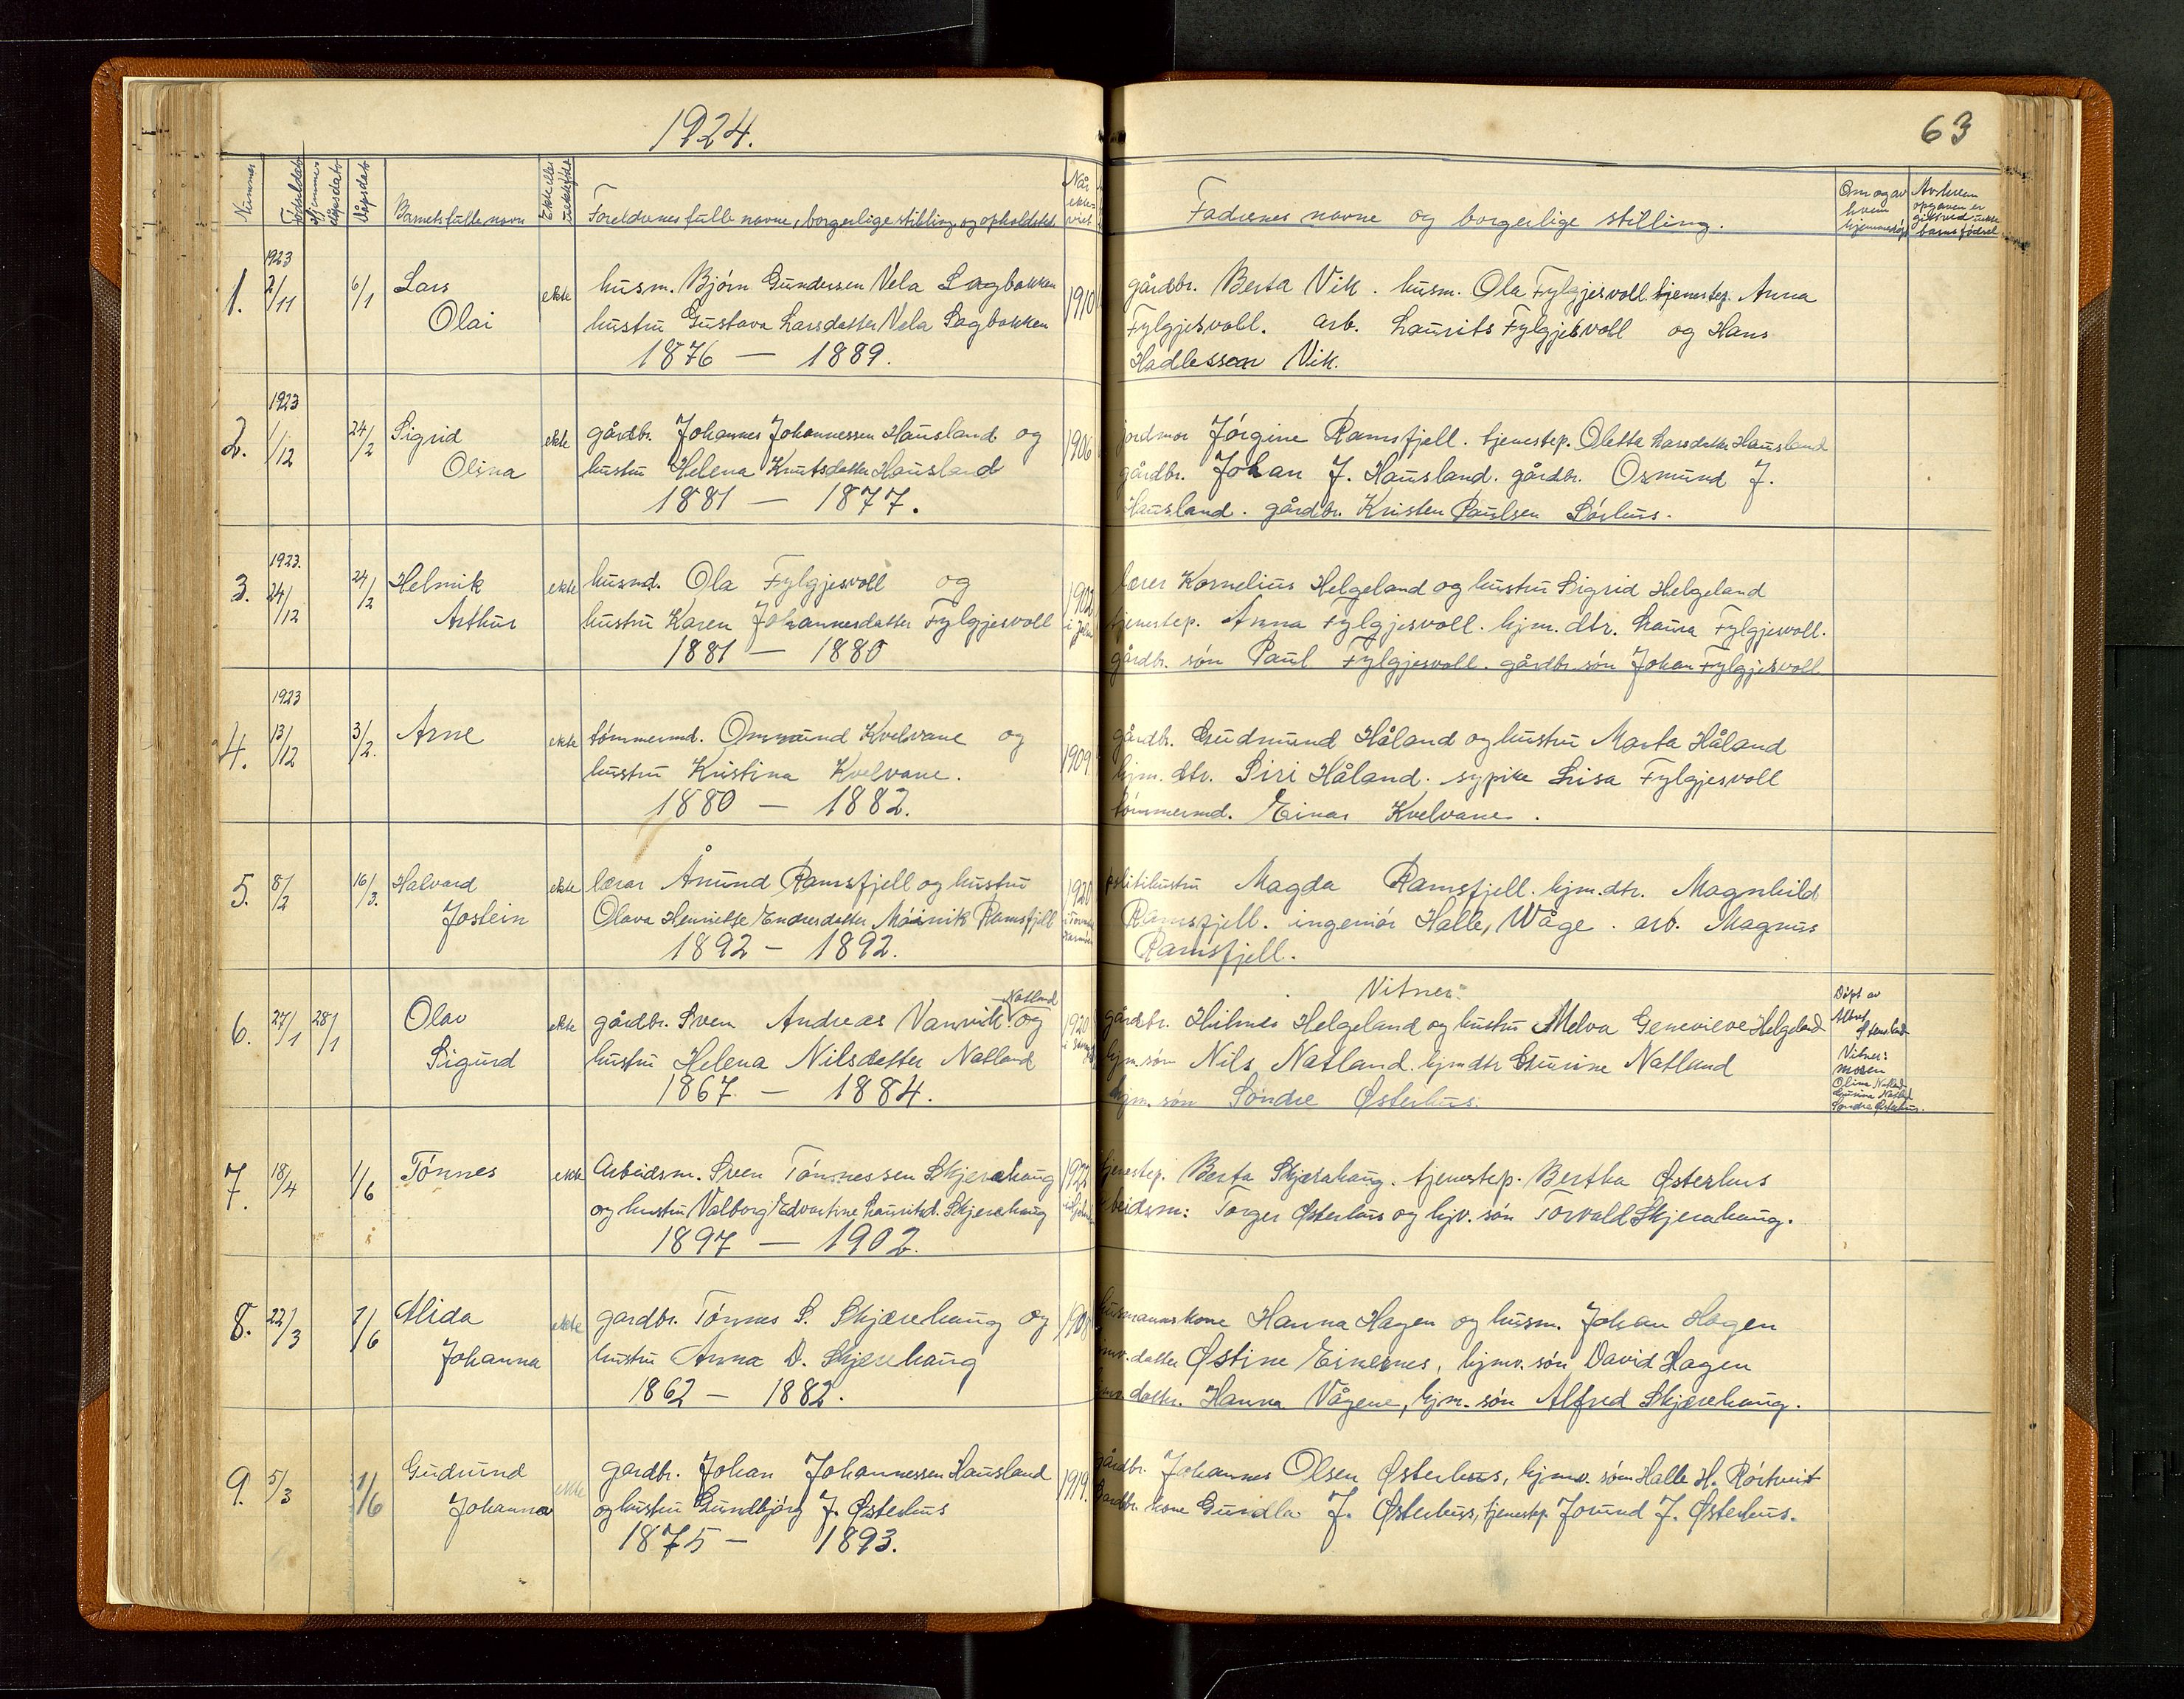 1924.
63
Nummer
Fødselsdato
Hjemmedåpsdato
Dåpsdato
Barnets fulle navn
Ekte eller uekte født
Foreldrenes fulle navne, borgerlige stilling og opholdsted
Når ekteviet
Faddrenes navne og borgerlige stilling.
Om og av hvem hjemmedøpt
Av hvem opgaven er git ved uekte barns fødsel
1923
1. 2/11 6/1 Lars ekte husm. Bjørn Gundersen Vela Sagbakken 1910 gårdbr. Berta Vik. husm. Ola Fylgjesvoll. tjenestep. Anna
Olai hustru Gustava Larsdatter Vela Sagbakken Fylgjesvoll. arb. Laurits Fylgjesvoll og Hans
1876 — 1889. Hadlessen Vik.
1923
2. 1/12 24/2 Sigrid ekte gårdbr. Johannes Johannessen Hausland og 1906 jordmor Jørgine Ramsfjell. tjenestep. Oletta Larsdatter Hausland
Olina hustru Helena Knutsdatter Hausland gårdbr. Johan J. Hausland. gårdbr. Osmund J.
1881 — 1877. Hausland. gårdbr. Kristen Paulsen Sørhus.
1923.
3. 24/12 24/2 Helmik ekte husmd. Ola Fylgjesvoll og 1902 lærer Kornelius Helgeland og hustru Sigrid Helgeland
Arthur hustru Karen Johannesdatter Fylgjesvoll tjenestep. Anna Fylgjesvoll. hjm. dtr. Laura Fylgjesvoll.
1881 — 1880 gårdbr. søn Paul Fylgjesvoll. gårdbr. søn Johan Fylgjesvoll
1923
4. 13/12 3/2. Arne ekte tømmermd. Ommund Kvelvane og 1909. gårdbr. Gudmund Håland og hustru Marta Håland
hustru Kristina Kvelvane. hjm. dtr. Siri Håland. sypike Lisa Fylgjesvoll
1880 — 1882. tømmermd. Einar Kvelvane.
5. 8/2 16/3. Halvard ekte lærar Ånund Ramsfjell og hustru 1920 politihustru Magda Ramsfjell. hjm. dtr. Magnhild
Jostein Olava Henriette Endresdatter Ramsfjell Ramsfjell. ingeniør Halle, Wåge. arb. Magnus
1892 – 1892. Ramsfjell.
Vitner:
6. 27/1 28/1 Olav ekte gårdbr. Sven Andreas Vanvik Natland og 1920 gårdbr. Hilmer Helgeland og hustru Melva Genevieve Helgeland
Sigurd hustru Helena Nilsdatter Natland hjm. søn Nils Natland. hjm dtr Gurine Natland
1867. — 1884. hjm. søn Søndre Østerhus.
Døpt av
Vitner:
moren
Olina Natland
Gurina Natland
Søndre Østerhus.
7. 18/4 1/6 Tønnes ekte Arbeidsm. Sven Tønnessen Skjerahaug 1922 tjenestep. Berta Skjærahaug. tjenestep. Bertha Østerhus
og hustru Valborg Edvartine Lauritsd. Skjerahaug arbeidsm: Torger Østerhus og hjv. søn Torvald Skjerahaug.
1897 — 1902.
8. 22/3 1/6 Alida ekte gardbr. Tønnes S. Skjærehaug og 1908 husmannskone Hanna Hagen og husm. Johan Hagen
Johanna hustru Anna D. Skjærehaug hjmv. datter Østine Eikenes, hjmv. søn David Hagen
1862 – 1882. hjmv. datter. Hanna Vågene, hjm. søn Alfred Skjærehaug.
9. 5/3 1/6 Gudrund ekte gardbr. Johan Johannessen Hausland 1919. gårdbr. Johannes Olsen Østerhus, hjmv. søn Halle H. Rørtveit
Johanna og hustru Gundbjørg J. Østerhus Gardbr. kone Gundla J. Østerhus, tjenestep. Jorund J. Østerhus.
1875 – 1893.